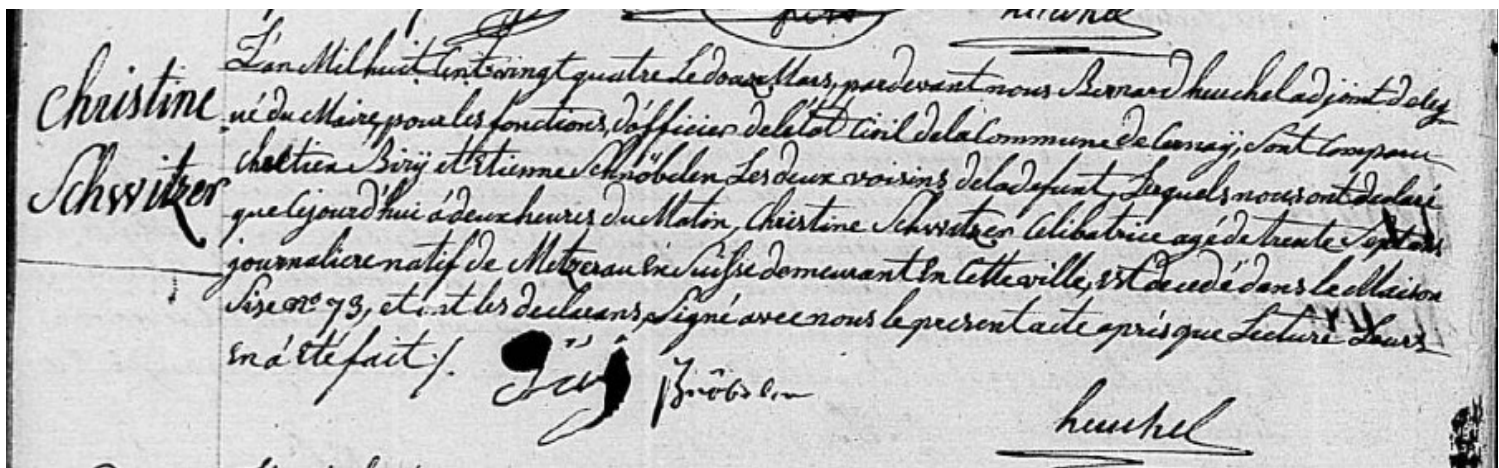 heuchel
Christine
Schwitzer
L'an Mil huit Cent vingt quatre Le douze Mars, pardevant nous Bernard heuchel adjoint deleg
ué du Maire, pour les fonctions, d'officier de l'état Civil de la Commune de Cernaÿ, Sont Comparu
chretien Birÿ et Etienne Schnöbelen Les deux voisins de la defunt, Lesquels nous ont declaré
que Cejourd'hui á deux heures du Matin, Christine Schwitzer Celibatrice agé de trente Sept ans
journaliere natif de Metzerau en Suisse demeurant en Cette ville, est decedé dans le Maison
Sise n° 73, et ont les declarans, Signé avec nous le present acte aprés que Lecture Leurs
en á été fait ./.
heuchel